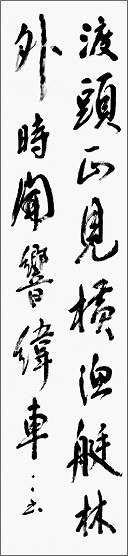 渡頭正見橫漁艇林
外時聞響緯車